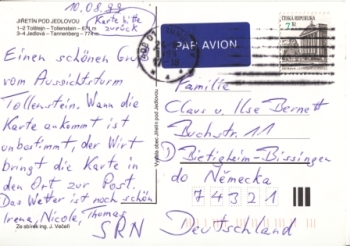 JIŘETÍN POD JEDLOVOU
1-2 Tolštejn - Tollenstein - 670 m
3-4 Jedlová - Tannenberg - 774 m
10.08.99
Karte bitte
zurück
Einen schönen Gruß
vom Aussichtsturm
Tollenstein. Wann die
Karte ankommt ist
unbestimmt, der Wirt
bringt die Karte in
den Ort zur Post.
Das Wetter ist noch schön
Irene, Nicole, Thomas
SRN
PAR AVION
ČESKÁ REPUBLIKA
7 Kč
Familie
Claus u. Ilse Bernett
Buchstr. 11
D Bietigheim-Bissingen
do Německa
74321
Deutschland